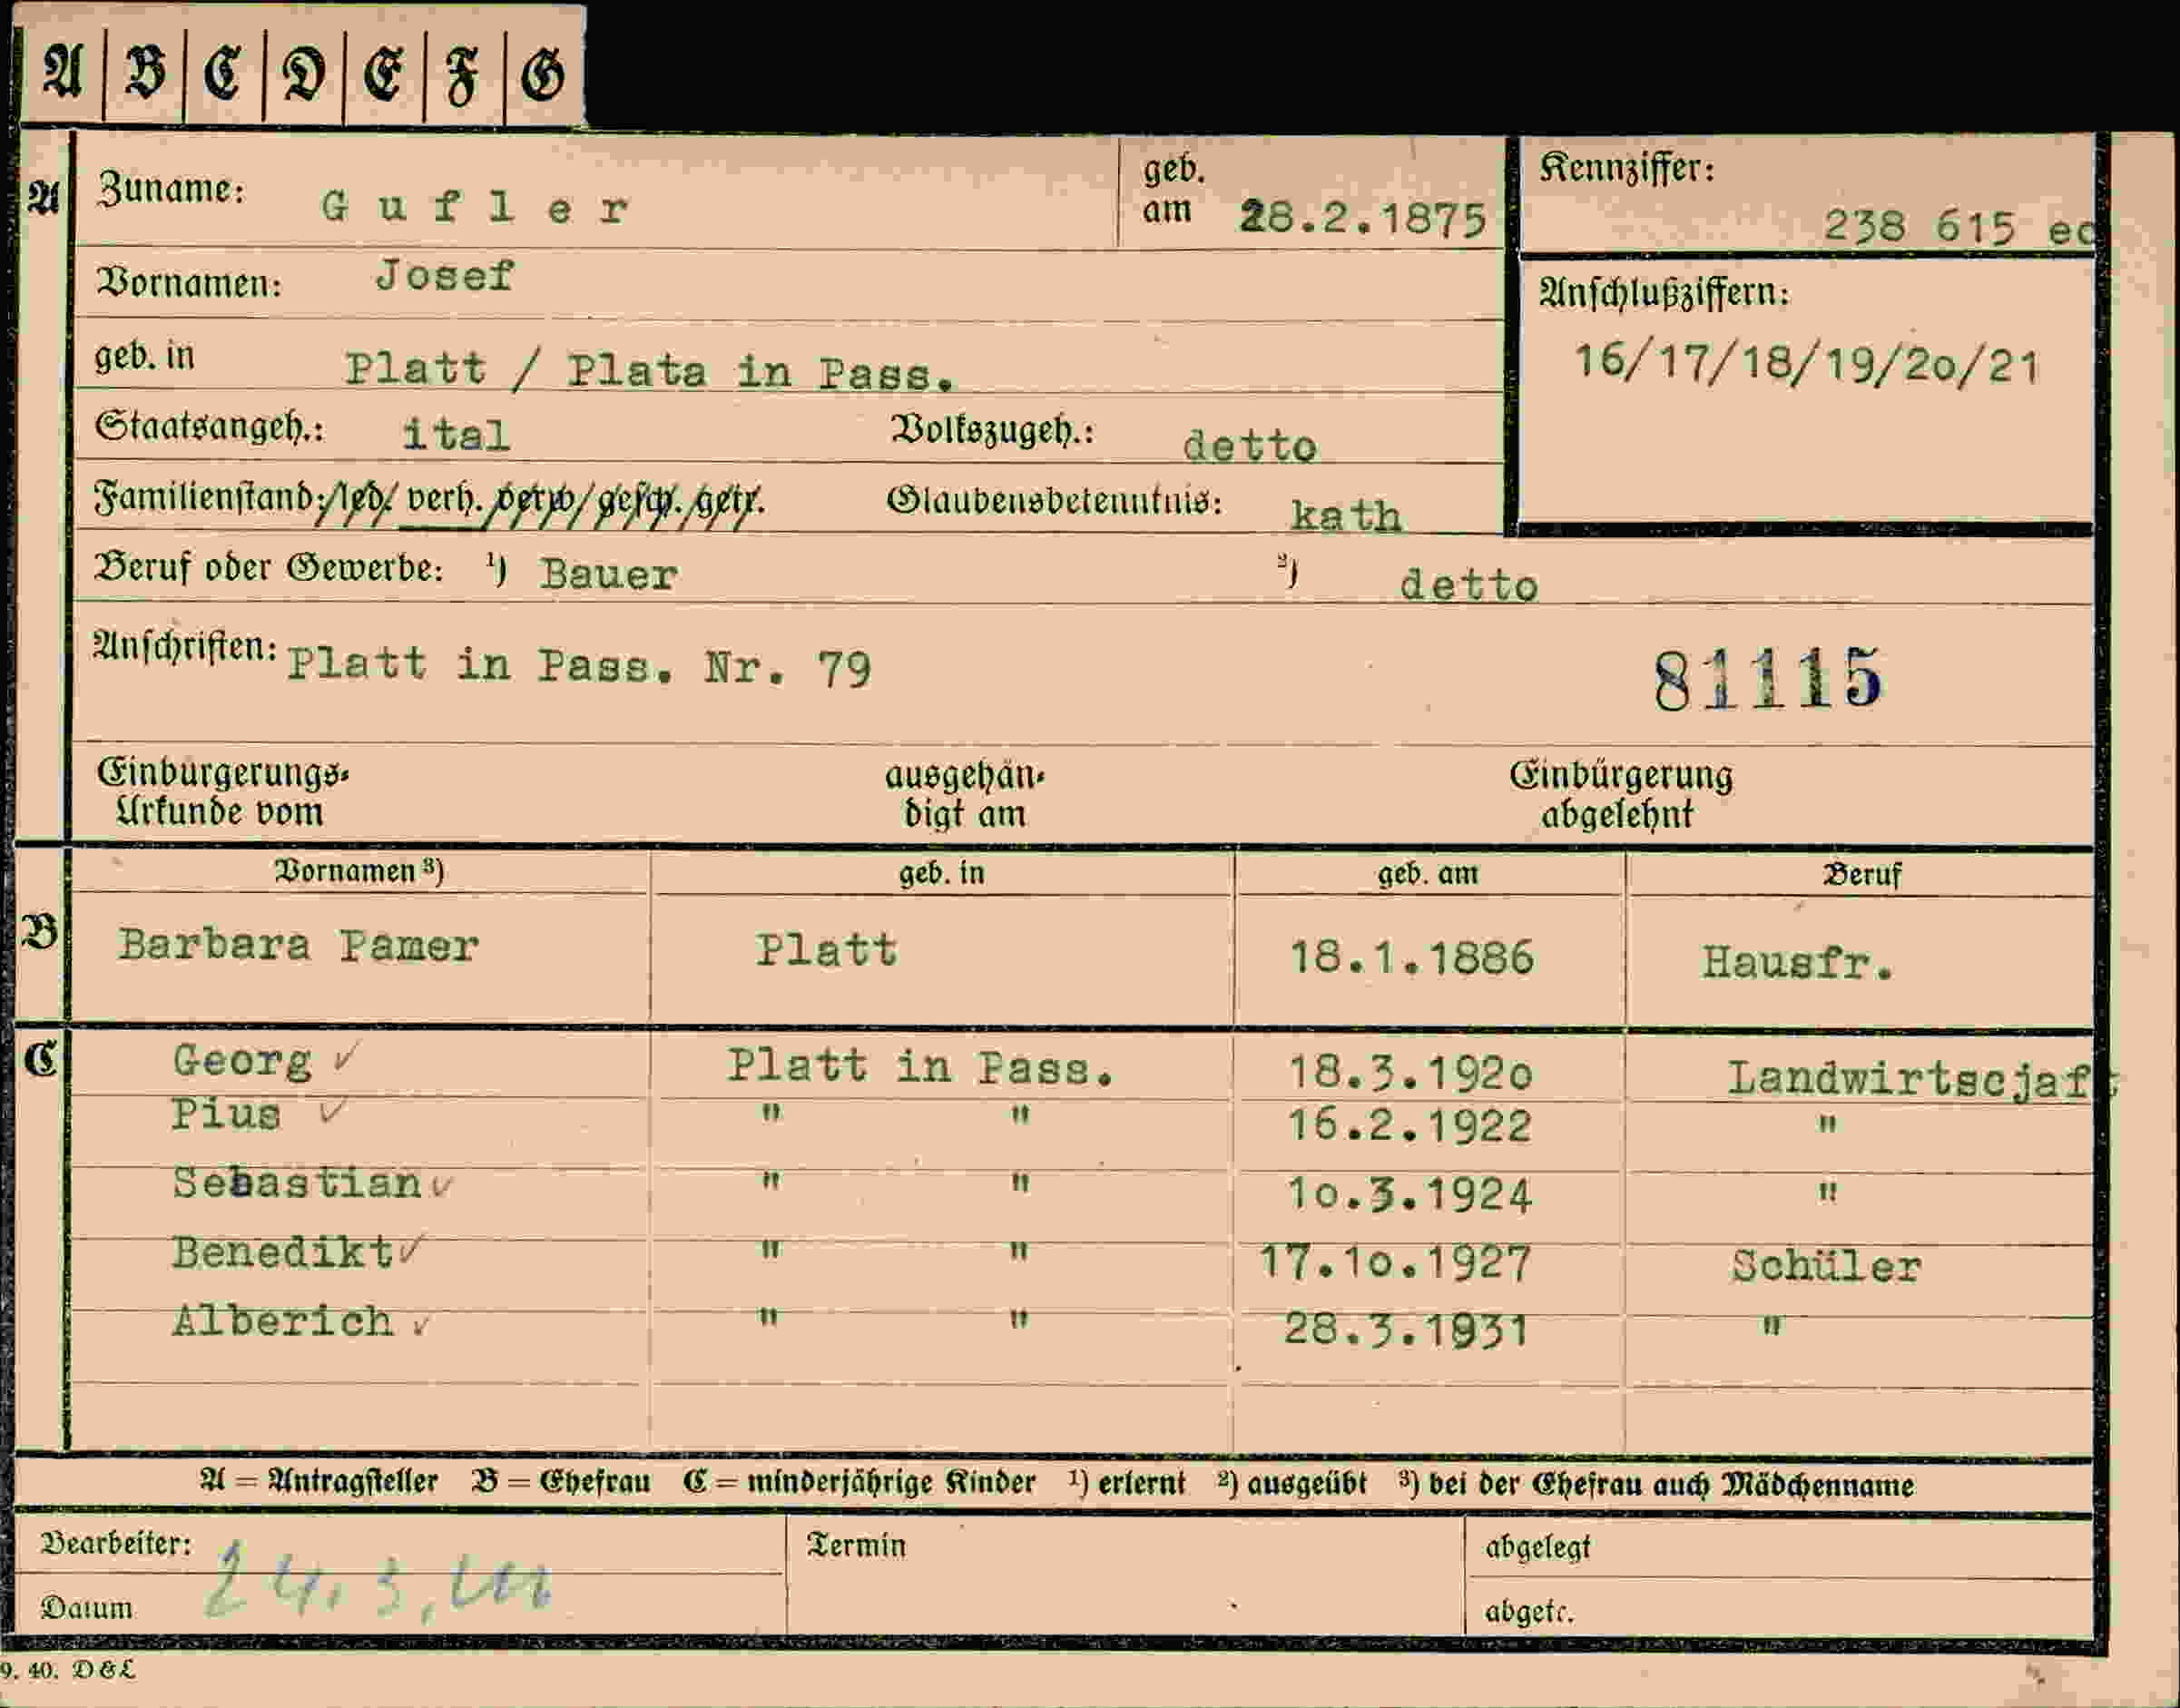 A B C D E F G
A Zuname: Gufler geb. am 28.2.1875 Kennziffer: 238 615 ec
Vornamen: Josef Anschlußziffern:
geb. in Platt / Plata in Pass. 16/17/18/19/2o/21
Staatsangeh.: ital Volkszugeh.: detto
Familienstand: led. verh. verw. gesch. getr. Glaubensbekenntnis: kath
Beruf oder Gewerbe: ¹) Bauer ²) detto
Anschriften: Platt in Pass. Nr. 79 81115
Einbürgerungs-Urkunde vom ausgehändigt am Einbürgerung abgelehnt
Vornamen ³) geb. in geb. am Beruf
B Barbara Pamer Platt 18.1.1886 Hausfr.
C Georg ✓ Platt in Pass. 18.3.192o Landwirtscjaft
Pius ✓ " " 16.2.1922 "
Sebastian ✓ " " 1o.3.1924 "
Benedikt ✓ " " 17.1o.1927 Schüler
Alberich ✓ " " 28.3.1931 "
A = Antragsteller B = Ehefrau C = minderjährige Kinder ¹) erlernt ²) ausgeübt ³) bei der Ehefrau auch Mädchenname
Bearbeiter: Termin abgelegt
24. 3.
Datum abgetr.
9. 40. D&L